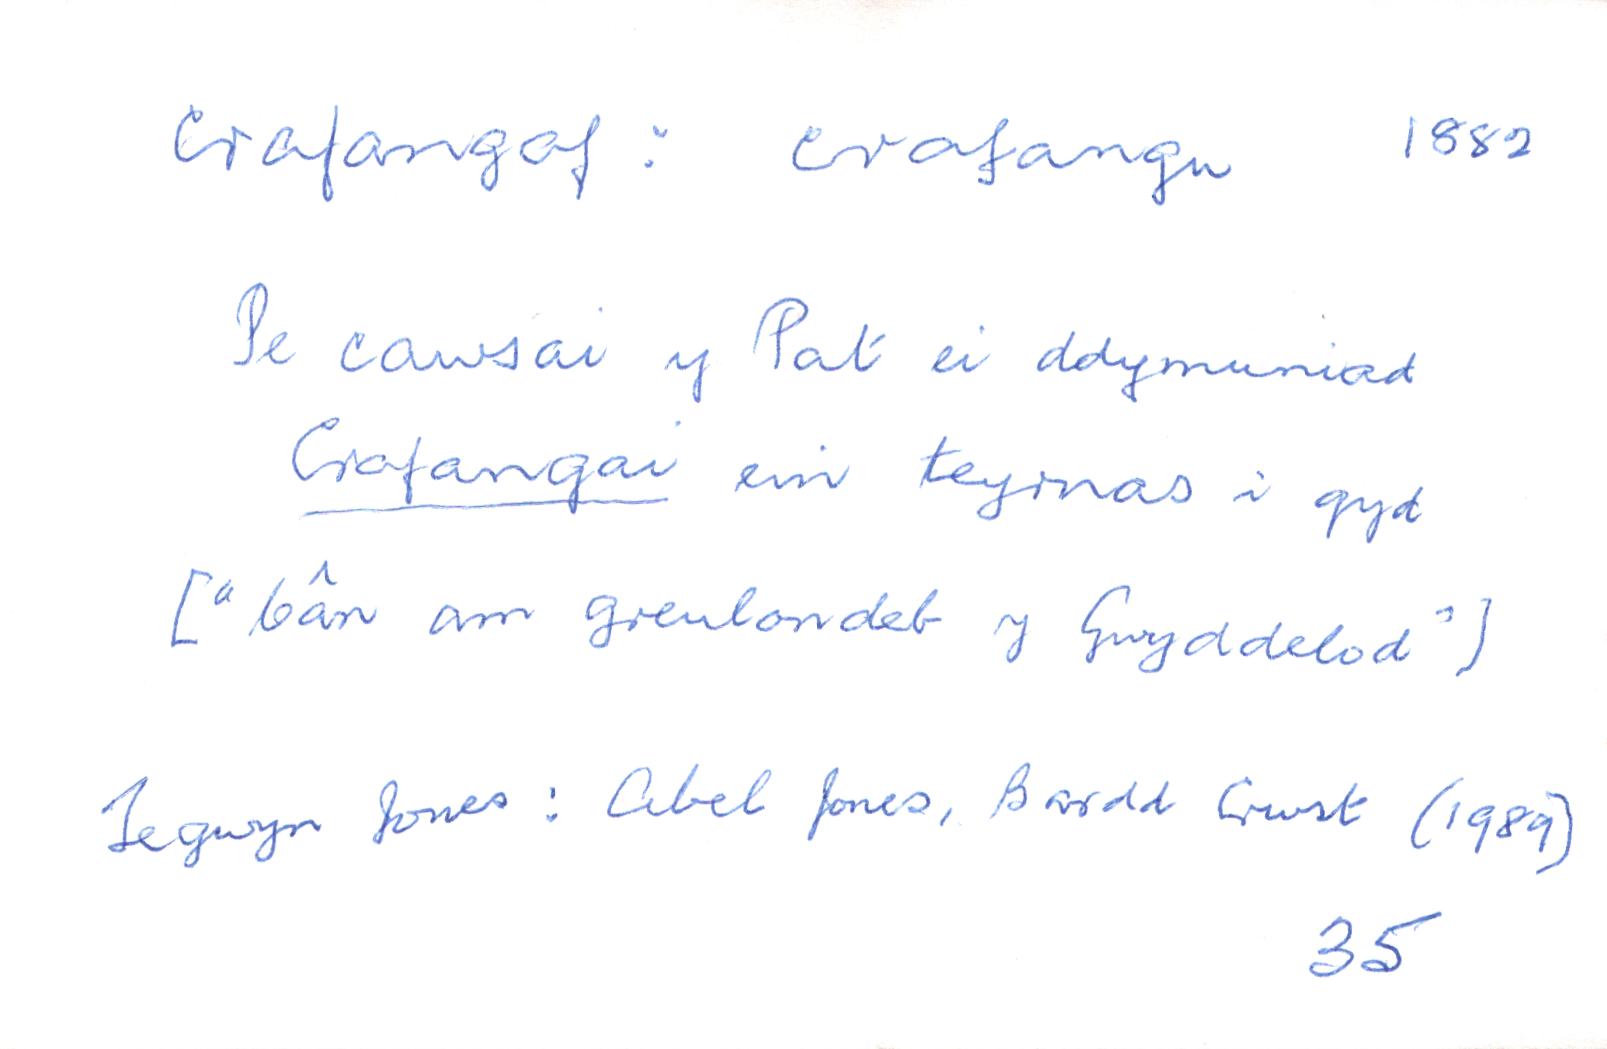 crafangaf : crafangu 1882
Pe cawsai y Pat ei ddymuniad
Crafangai ein teyrnas i gyd
["cân am greulondeb y Gwyddelod"]
Tegwyn Jones : Abel Jones, Bardd Crwst (1989)
35